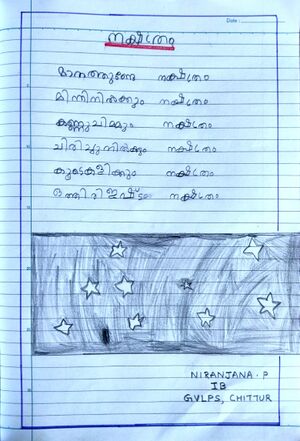 Date :
നക്ഷത്രം
മാനത്തുണ്ടേ നക്ഷത്രം
മിന്നിനിൽക്കും നക്ഷത്രം
കണ്ണുചിമ്മും നക്ഷത്രം
ചിരിച്ചുനിൽക്കും നക്ഷത്രം
കൂടെകളിക്കും നക്ഷത്രം
ഒത്തിരിഇഷ്ടം നക്ഷത്രം
NIRANJANA.P
IB
GVLPS, CHITTUR